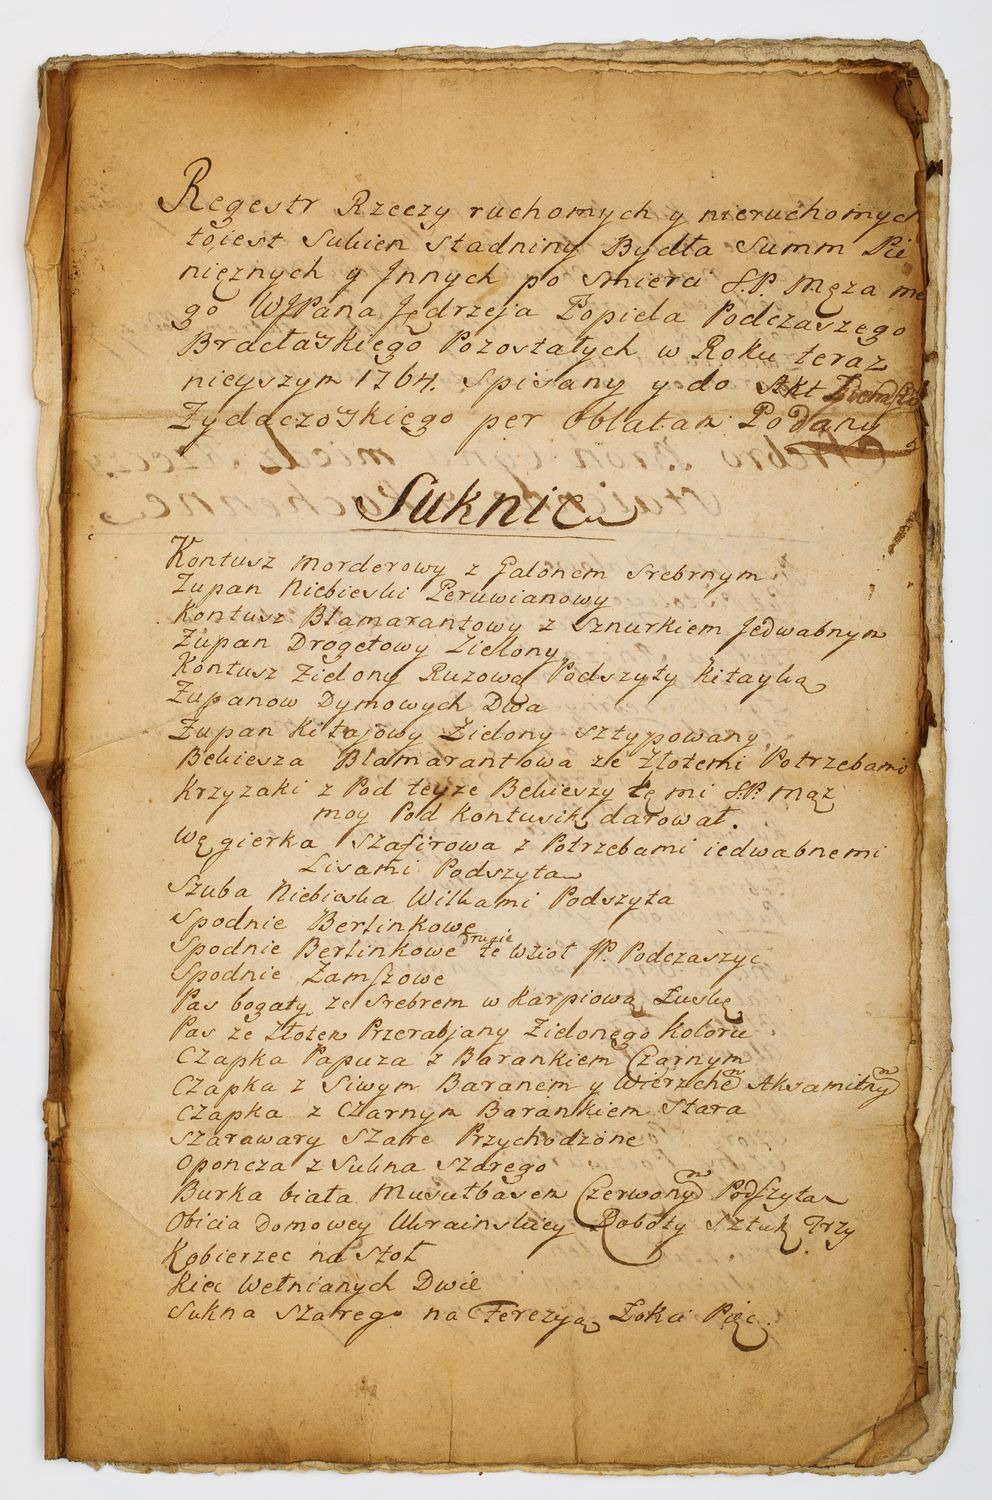 Regestr Rzeczy ruchomych y nieruchomych
toiest Sukien Stadniny Bydła Summ Pie
nięznych y Jnnych po Smierci S.P. Męza me
go WJPana Jędrzeja Popiela Podczaszego
Bracławskiego Pozostałych w Roku teraz
nieyszym 1764. Spisany y do Akt
Zydaczowskiego per Oblatam Podany
Suknie
Kontusz Morderowy z Galonem Srebrnym
Zupan Niebieski Peruwianowy
Kontusz Blamarantowy z Sznurkiem Jedwabnym
Zupan Drogetowy Zielony
Kontusz Zielony Ruzową Podszyty Kitayką
Zupanow Dymowych Dwa
Zupan Kitajowy Zielony Sztypowany
Bekiesza Blamarantowa ze Złotemi Potrzebami
Krzyzaki z Pod teyze Bekieszy tę mi S.P. Mąz
moy Pod Kontusik darował.
Węgierka Szafirowa z Potrzebami iedwabnemi
Lisami Podszyta
Szuba Niebieska Wilkami Podszyta
Spodnie Berlinkowe
Spodnie Berlinkowe drugie te Wzioł JP. Podczaszyc
Spodnie Zamszowe
Pas bogaty ze Srebrem w Karpiową Łuskę
Pas ze Złotem Przerabjany Zielonego Koloru
Czapka Papuza z Barankiem Czarnym
Czapka z Siwym Baranem y Wierzchem Aksamitnym
Czapka z Czarnym Barankiem Stara
Szarawary Szare Przychodzone
Oponcza z Sukna Szarego
Burka biała Musułbasem Czerwonym Podszyta
Obicia Domowey Ukrainskiey Roboty Sztuk Trzy
Kobierzec na Stoł
Kiec Wełnianych Dwie
Sukna Szarego na Ferezyą Łokci Pięc.